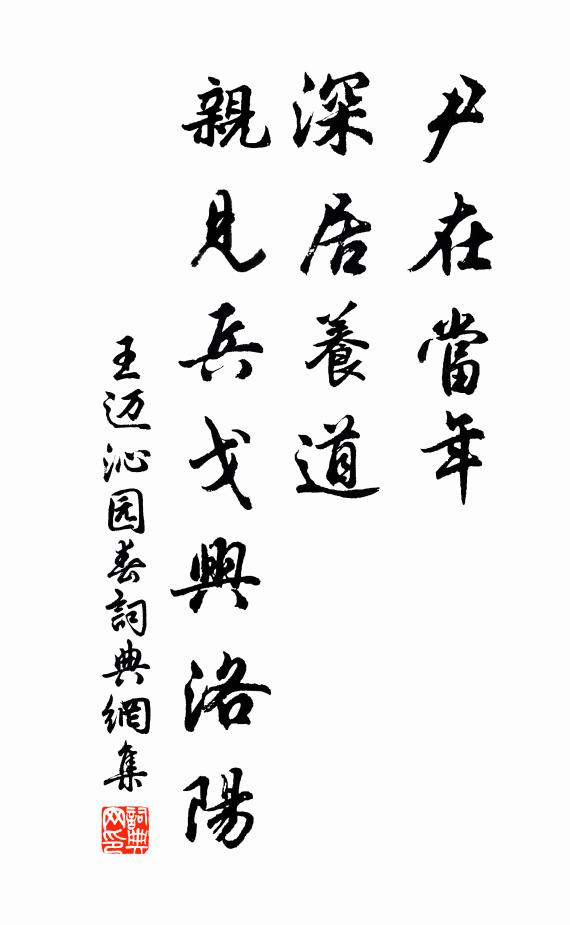 尹在當年
深居養道
親見兵戈興洛陽
王迈沁园春詞典網集
詞典网印